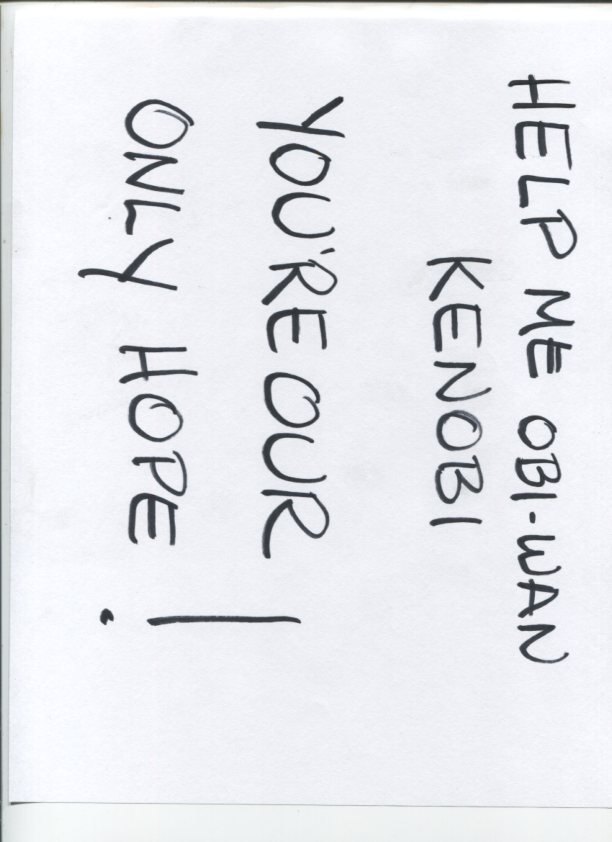 HELP ME OBI-WAN
KENOBI
YOU'RE OUR
ONLY HOPE!